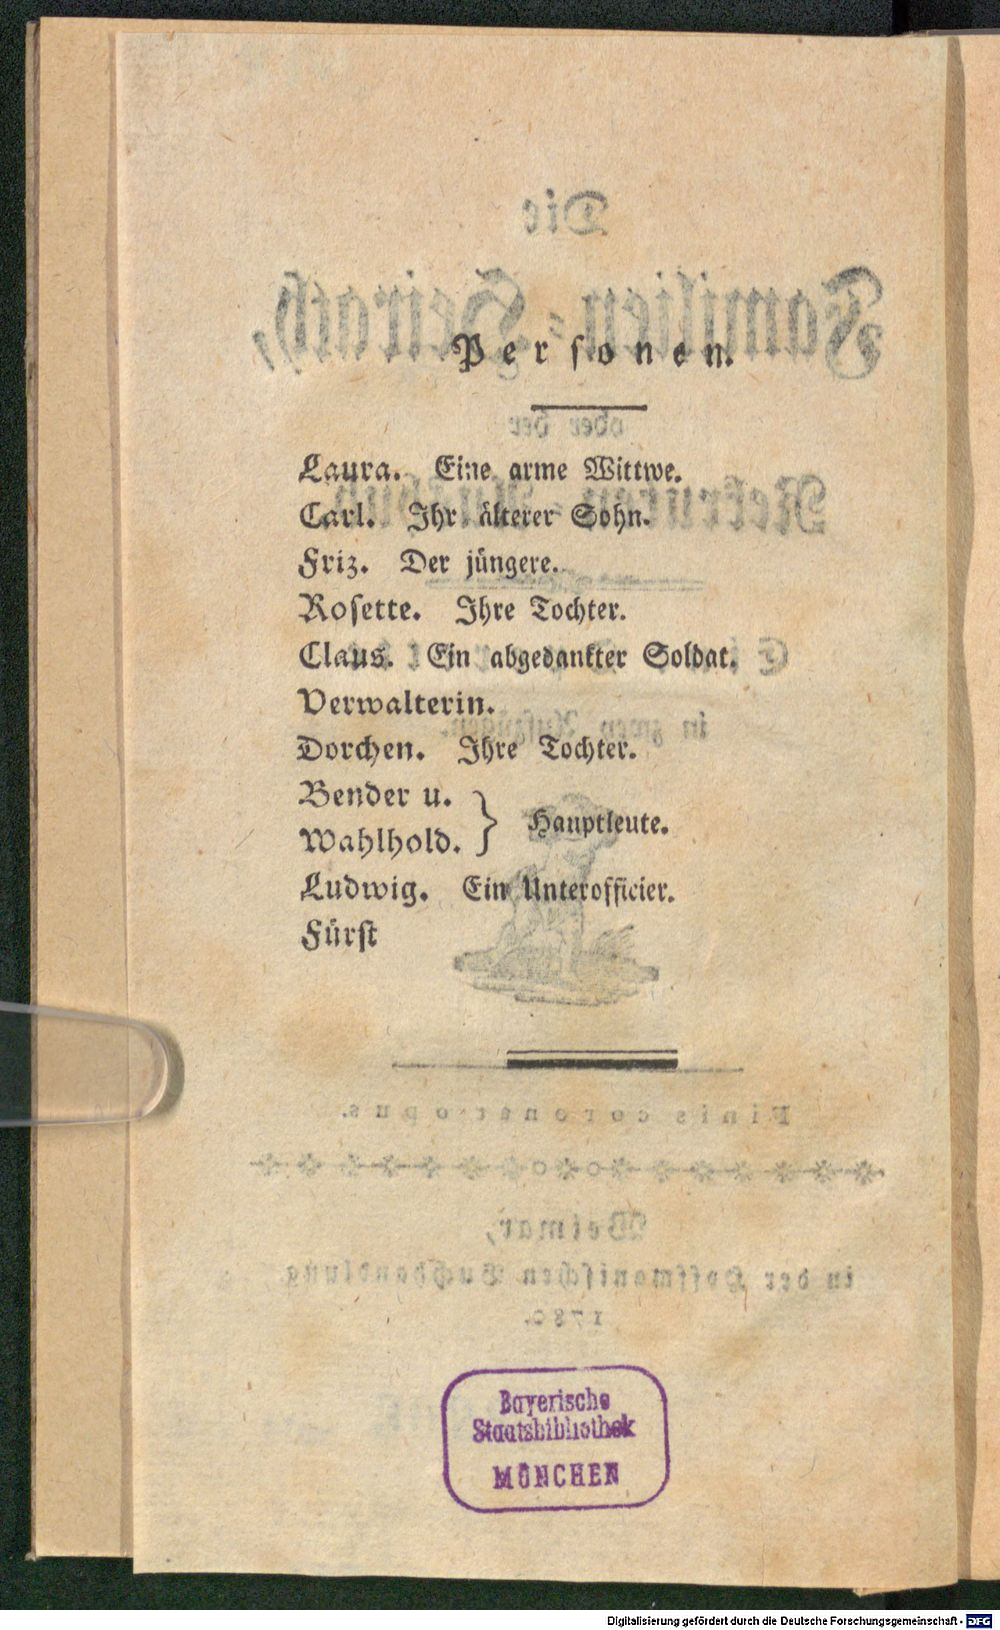 Personen.
Laura. Eine arme Wittwe.
Carl. Ihr älterer Sohn.
Friz. Der jüngere.
Rosette. Ihre Tochter.
Claus. Ein abgedankter Soldat.
Verwalterin.
Dorchen. Ihre Tochter.
Bender u.
Wahlhold. } Hauptleute.
Ludwig. Ein Unterofficier.
Fürst
Bayerische
Staatsbibliothek
MÜNCHEN
Digitalisierung gefördert durch die Deutsche Forschungsgemeinschaft - DFG